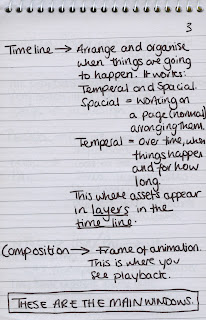 3
Timeline → Arrange and organise
when things are going
to happen. It works:
Temperal and Spacial.
Spacial = Working on
a page (normal)
arranging them.
Temperal = over time, when
things happen
and for how
long.
This where assets appear
in layers in the
time line.
Composition → Frame of animation.
This is where you
see playback.
THESE ARE THE MAIN WINDOWS.